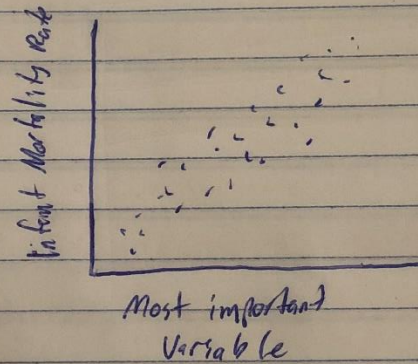 Infant Mortality Rate
Most important
Variable